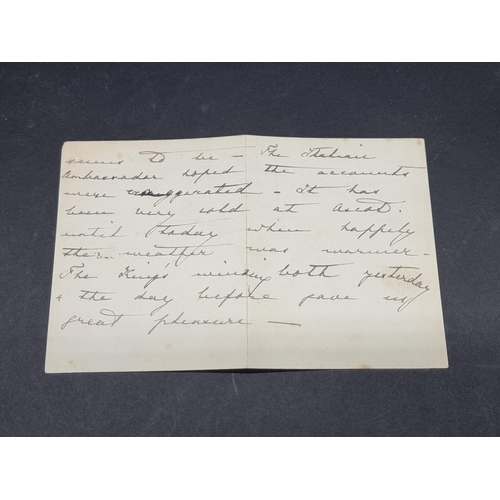 seems to be — The Italian
Ambassador hoped the accounts
were exaggerated - It has
been very cold at Ascot.
until today when happily
the weather was warmer -
The King's winning both yesterday
+ the day before gave us
great pleasure —